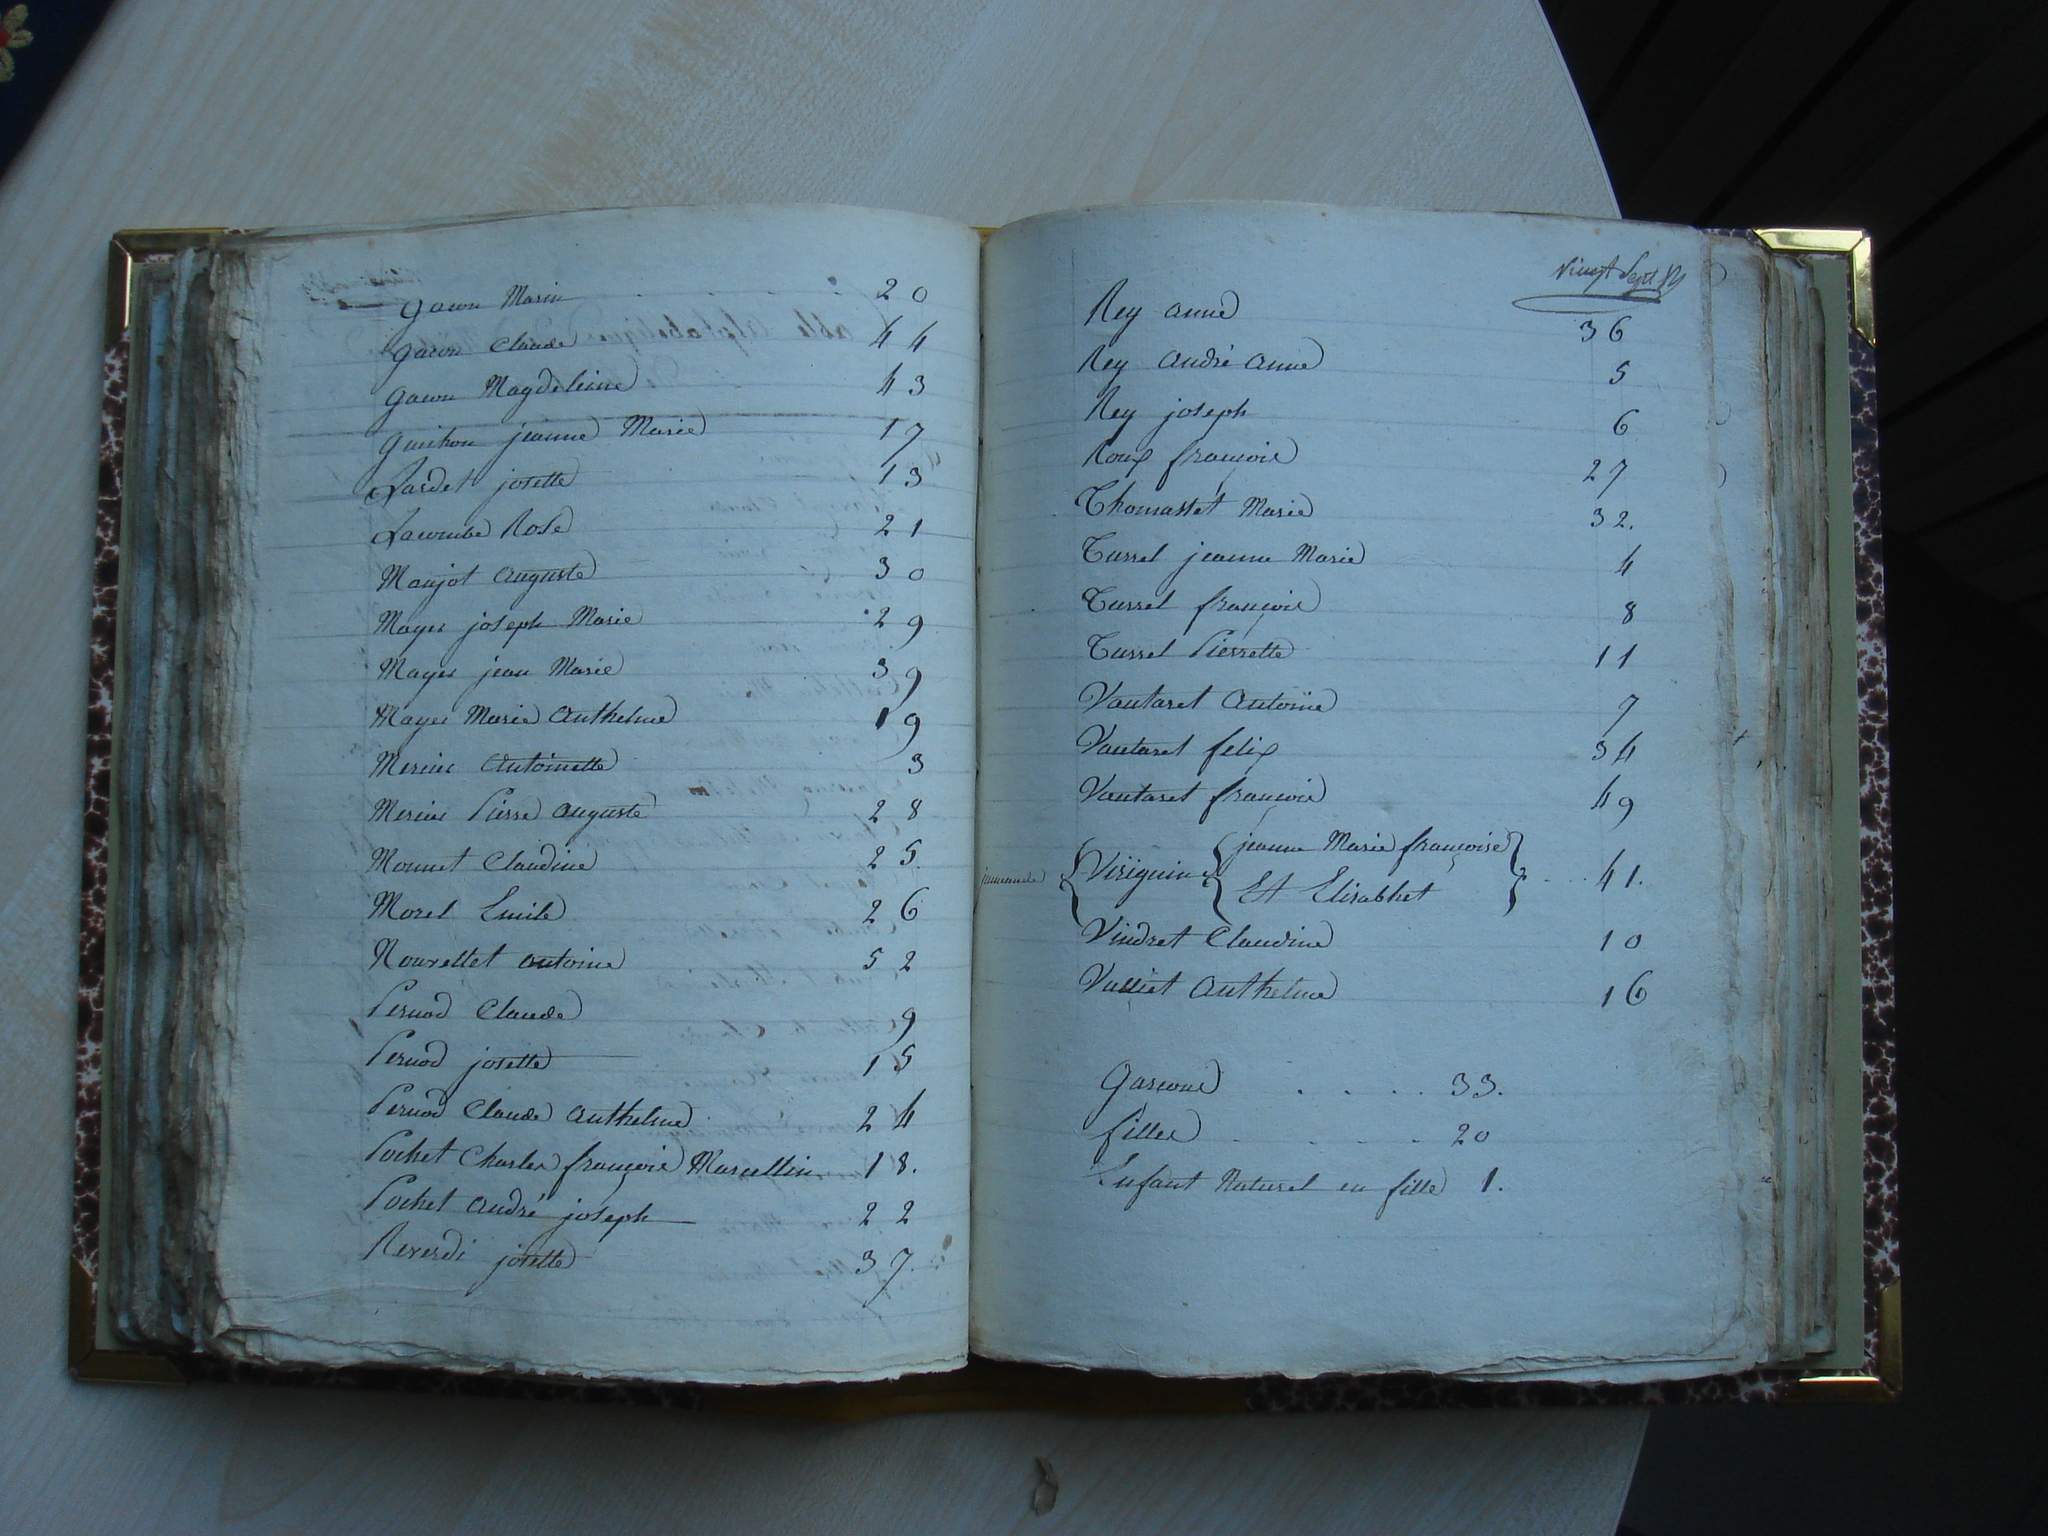 gacon Marin 20
gacon Claude 44
gacon Magdeleine 43
guichon jeanne Marie 17
Lardet josette 13
Lacombe Rose 21
Maujot auguste 30
Mayer joseph Marie 29
Mayer jean Marie 39
Mayer Marie anthelme 19
Merine antoinette 3
Merine Pierre auguste 28
Monnet Claudine 25.
Morel Emile 26
Nourellet antoine 52
Pernod Claude 9
Pernod josette 15
Pernod Claude anthelme 24
Pochet Charles françois Marcellin 18.
Pochet andré joseph 22
Reverdi josette 37.
Vingt Sept
Rey anne 36
Rey andré anne 5
Rey joseph 6
Roux françois 27
Thomasset Marie 32.
Turrel jeanne Marie 4
Turrel françois 8
Turrel Pierrette 11
Vautaret antoine 7
Vautaret felix 34
Vautaret françois 49
jumenale Viriguin jeanne Marie françoise
Et Elisabhet 41.
Vindret Claudine 10
Vulliet anthelme 16
garcons . . . . 33.
filles . . . . . 20
Enfant Naturel en fille 1.